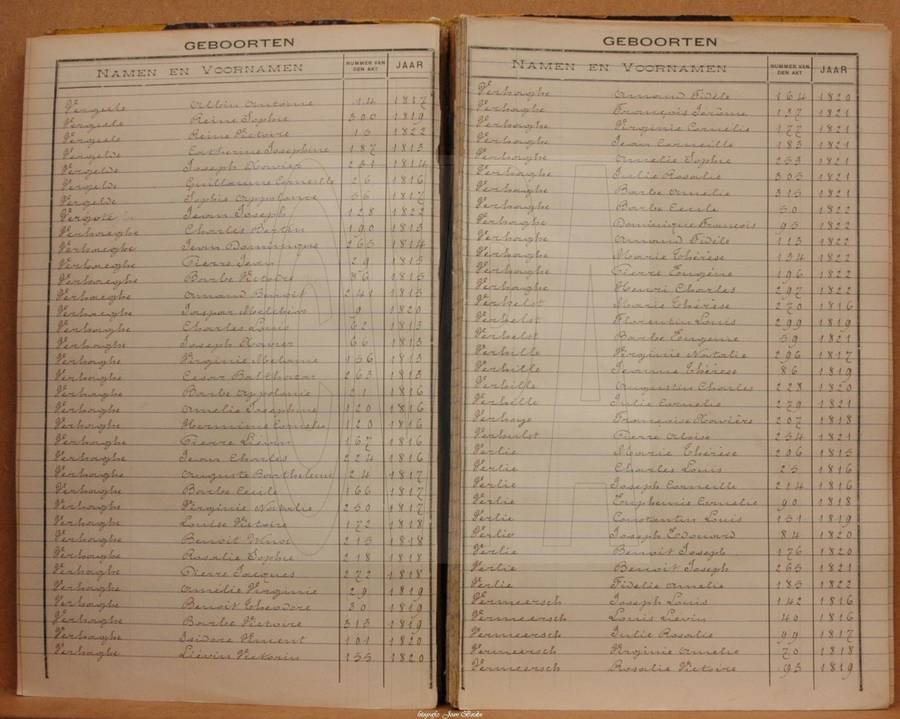 GEBOORTEN
NAMEN EN VOORNAMEN NUMMER VAN DEN AKT JAAR
Vergule Albin Antoine 14 1817
Vergule Reine Sophie 300 1819
Vergule Reine Victoire 13 1822
Vergelde Catherine Josephine 187 1813
Vergelde Joseph Xavier 231 1814
Vergelde Guillaume Corneille 26 1816
Vergelde Sophie Appolonie 36 1817
Jean Joseph 128 1822
Verhaeghe Charles Bertin 190 1813
Verhaeghe Jean Dominique 263 1814
Verhaeghe Pierre Jean 29 1815
Verhaeghe Barbe Victoire 36 1815
Verhaeghe Amand Benoit 241 1815
Verhaeghe 9 1820
Verhaeghe Charles Louis 62 1813
Verhaghe Joseph Xavier 66 1813
Verhaghe Virginie Melanie 156 1813
Verhaghe Cesar Balthazar 263 1813
Verhaghe Barbe Appolonie 21 1816
Verhaghe Amelie Josephine 120 1816
Verhaghe Hermine 120 1816
Verhaghe Pierre Liévin 167 1816
Verhaghe Jean Charles 226 1816
Verhaghe Auguste 24 1817
Verhaghe Barbe Cecile 166 1817
Verhaghe Virginie Natalie 250 1817
Verhaghe Louise Victoire 172 1818
Verhaghe Benoit 213 1818
Verhaghe Rosalie Sophie 218 1818
Verhaghe Pierre Jacques 272 1818
Verhaghe Amelie Virginie 29 1819
Verhaghe Benoit Theodore 30 1819
Verhaghe Barbe Victoire 313 1819
Verhaghe Isidore Vincent 101 1820
Verhaghe Liévin Victorin 155 1820
GEBOORTEN
NAMEN EN VOORNAMEN NUMMER VAN DEN AKT JAAR
Verhaghe Amand Fidèle 164 1820
Verhaghe François Jérôme 137 1821
Verhaghe Virginie Cornelie 177 1821
Verhaghe Jean Corneille 183 1821
Verhaghe Amelie Sophie 253 1821
Verhaghe Julie Rosalie 303 1821
Verhaghe Barbe Amelie 315 1821
Verhaghe Barbe Cecile 50 1822
Verhaghe Dominique François 93 1822
Verhaghe Amand Fidèle 113 1822
Verhaghe Marie Thérèse 134 1822
Verhaghe Pierre Eugène 196 1822
Verhaghe Henri Charles 297 1822
Verhelst Marie Thérèse 270 1816
Verhelst Florentin Louis 299 1819
Verhelst Barbe Eugenie 59 1821
Verhille Virginie Natalie 296 1817
Verhille Jeanne Thérèse 86 1819
Verhille Augustin Charles 228 1820
Verhille Julie Cornelie 279 1821
Verhoye Françoise Xavière 207 1818
Verhulst Pierre Aloise 254 1821
Verlie Marie Thérèse 206 1815
Verlie Charles Louis 25 1816
Verlie Joseph Corneille 214 1816
Verlie Euphemie Cornelie 90 1818
Verlie Constantin Louis 151 1819
Verlie Joseph Edouard 84 1820
Verlie Benoit Joseph 176 1820
Verlie Benoit Joseph 265 1821
Verlie Fidelie Amelie 185 1822
Vermeersch Joseph Louis 142 1816
Vermeersch Louis Lievin 40 1816
Vermeersch Julie Rosalie 99 1817
Vermeersch Virginie Amelie 70 1818
Vermeersch Rosalie Victoire 93 1819